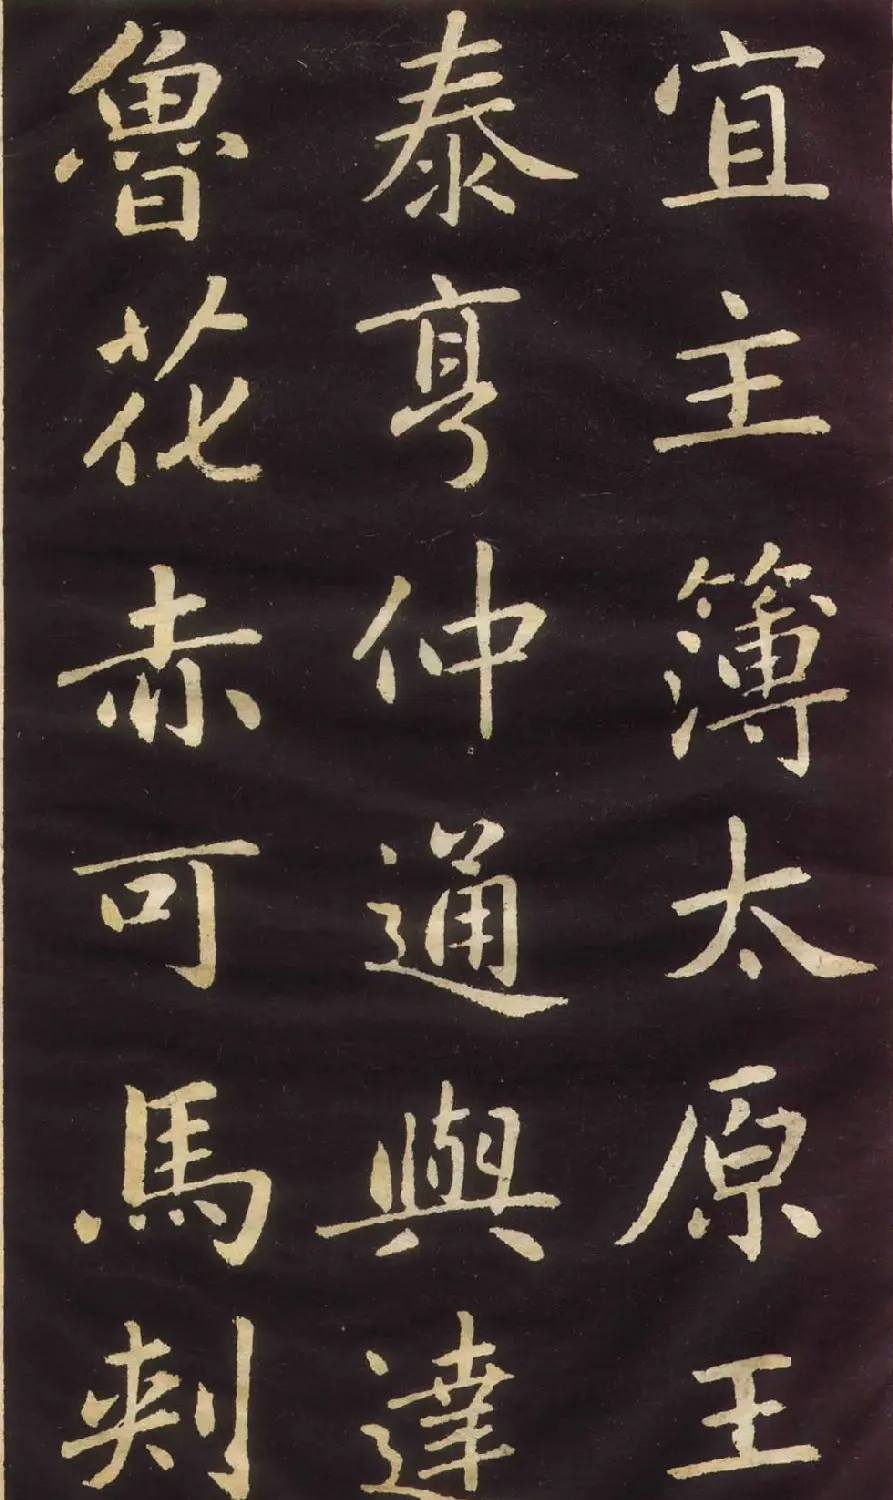 宜主簿太原王
泰亨仲通與達
魯花赤可馬剌